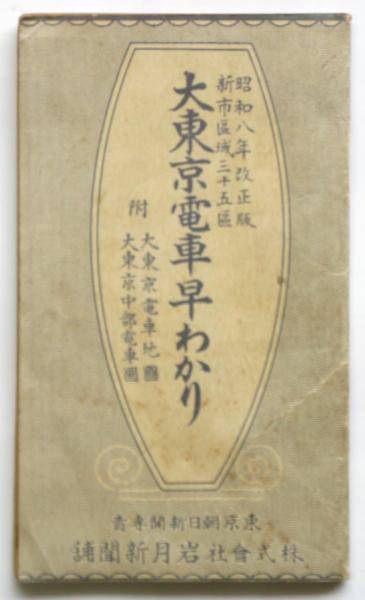 昭和八年改正版
新市區域三十五區
大東京電車早わかり
附
大東京電車地圖
大東京中部電車圖
東京朝日新聞專賣
株式會社岩月新聞舖